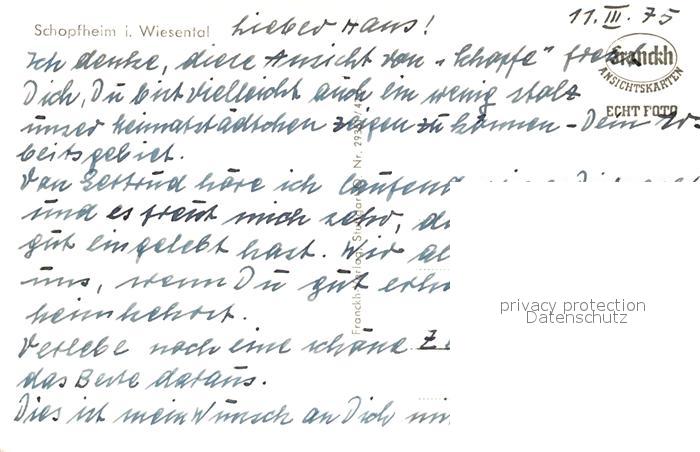 Schopfheim i. Wiesental
Lieber Hans!
11. III. 75
Franckh
ANSICHTSKARTEN
ECHT FOTO
Ich denke, diese Ansicht von "Schopfe" freut
Dich, Du bist vielleicht auch ein wenig stolz
unser Heimatstädtchen zeigen zu können - Dein Ar-
beitsgebiet.
Von Gertrud höre ich laufend
und es freut mich sehr, da
gut eingelebt hast. Wir al
uns, wenn Du gut erho
heimkehrst.
Verlebe noch eine schöne Z
das Beste daraus.
Dies ist mein Wunsch an Dich mi
Franckh-Verlag, Stuttgart Nr.
privacy protection
Datenschutz